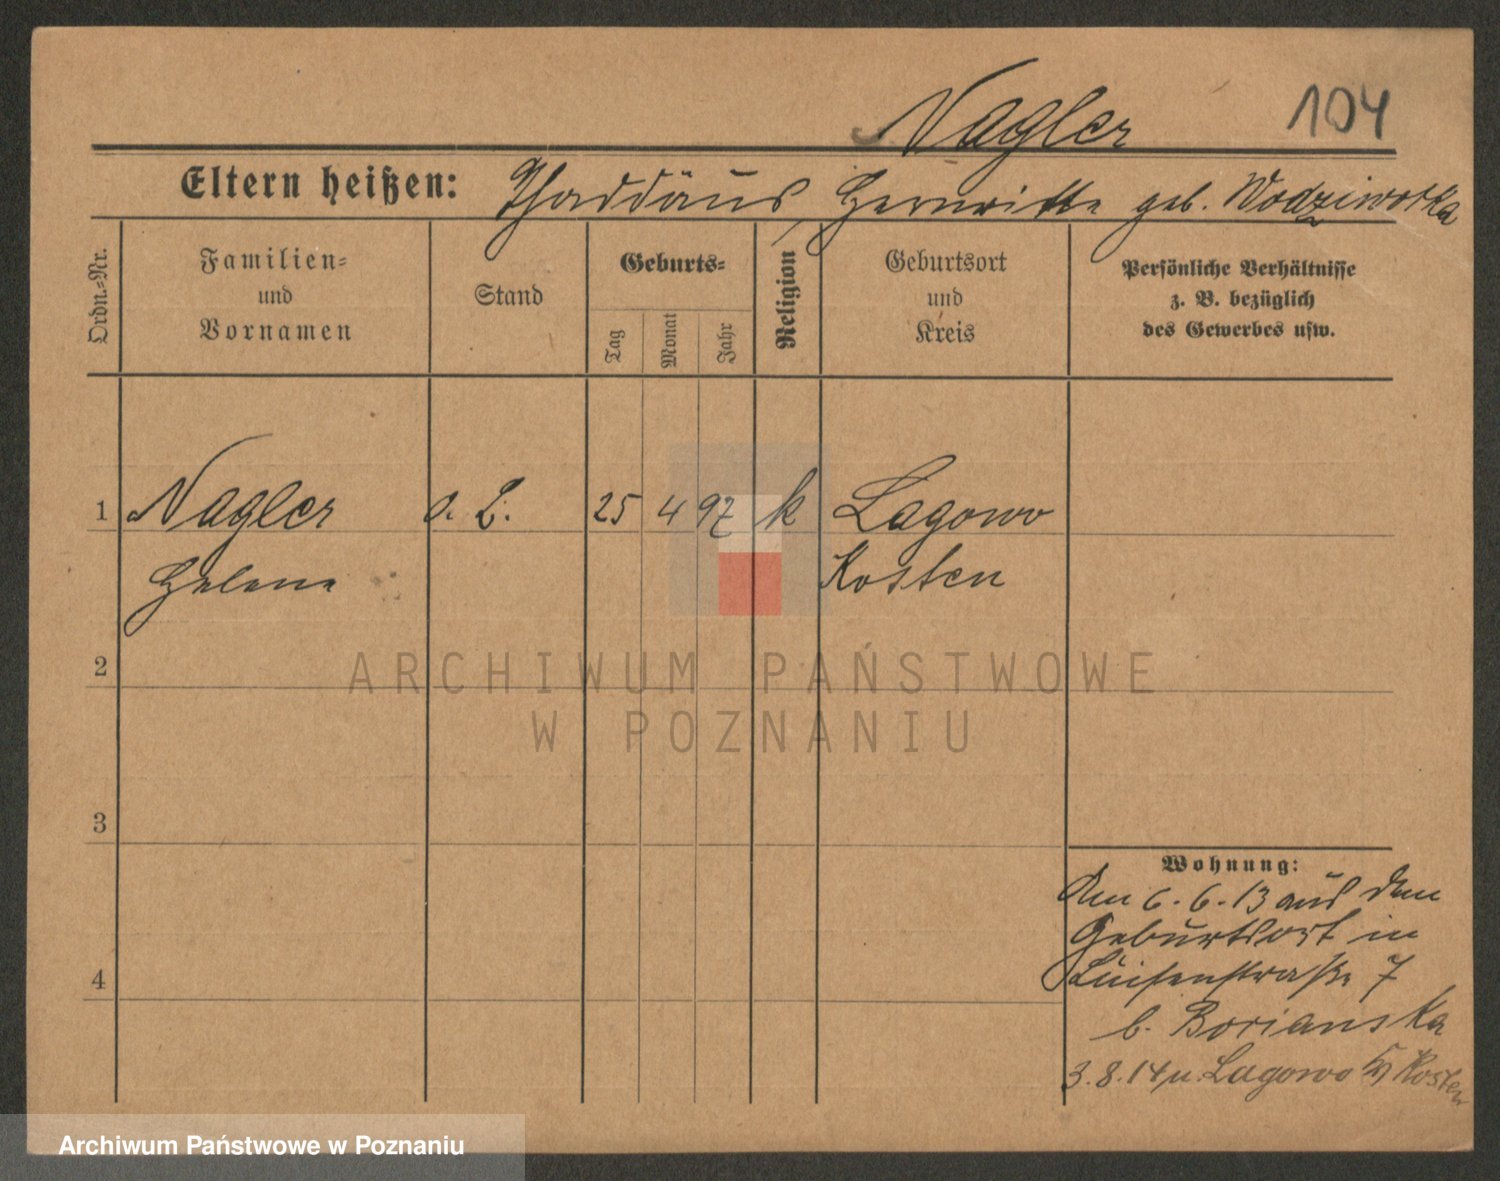 Nagler 104
Eltern heißen: Thaddäus, Henriette geb. Wodziwotka
Ordn.-Nr.
Familien-
und
Vornamen
Stand
Geburts-
Tag
Monat
Jahr
Religion
Geburtsort
und
Kreis
Persönliche Verhältnisse
z. B. bezüglich
des Gewerbes usw.
1 Nagler o. L. 25 4 97 k Lagowo
Helene Kosten
2
ARCHIWUM PAŃSTWOWE
W POZNANIU
3
4
Wohnung:
Am 6.6.13 aus dem
Geburtsort in
Luisenstraße 7
b. Borianska
3.8.14 n. Lagowo Kosten
Archiwum Państwowe w Poznaniu